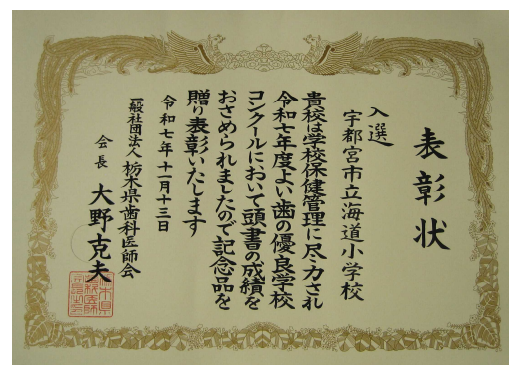 表彰状
入選
宇都宮市立海道小学校
貴校は学校保健管理に尽力され
令和七年度よい歯の優良学校
コンクールにおいて頭書の成績を
おさめられましたので記念品を
贈り表彰いたします
令和七年十一月十三日
一般社団法人 栃木県歯科医師会
会長 大野克夫